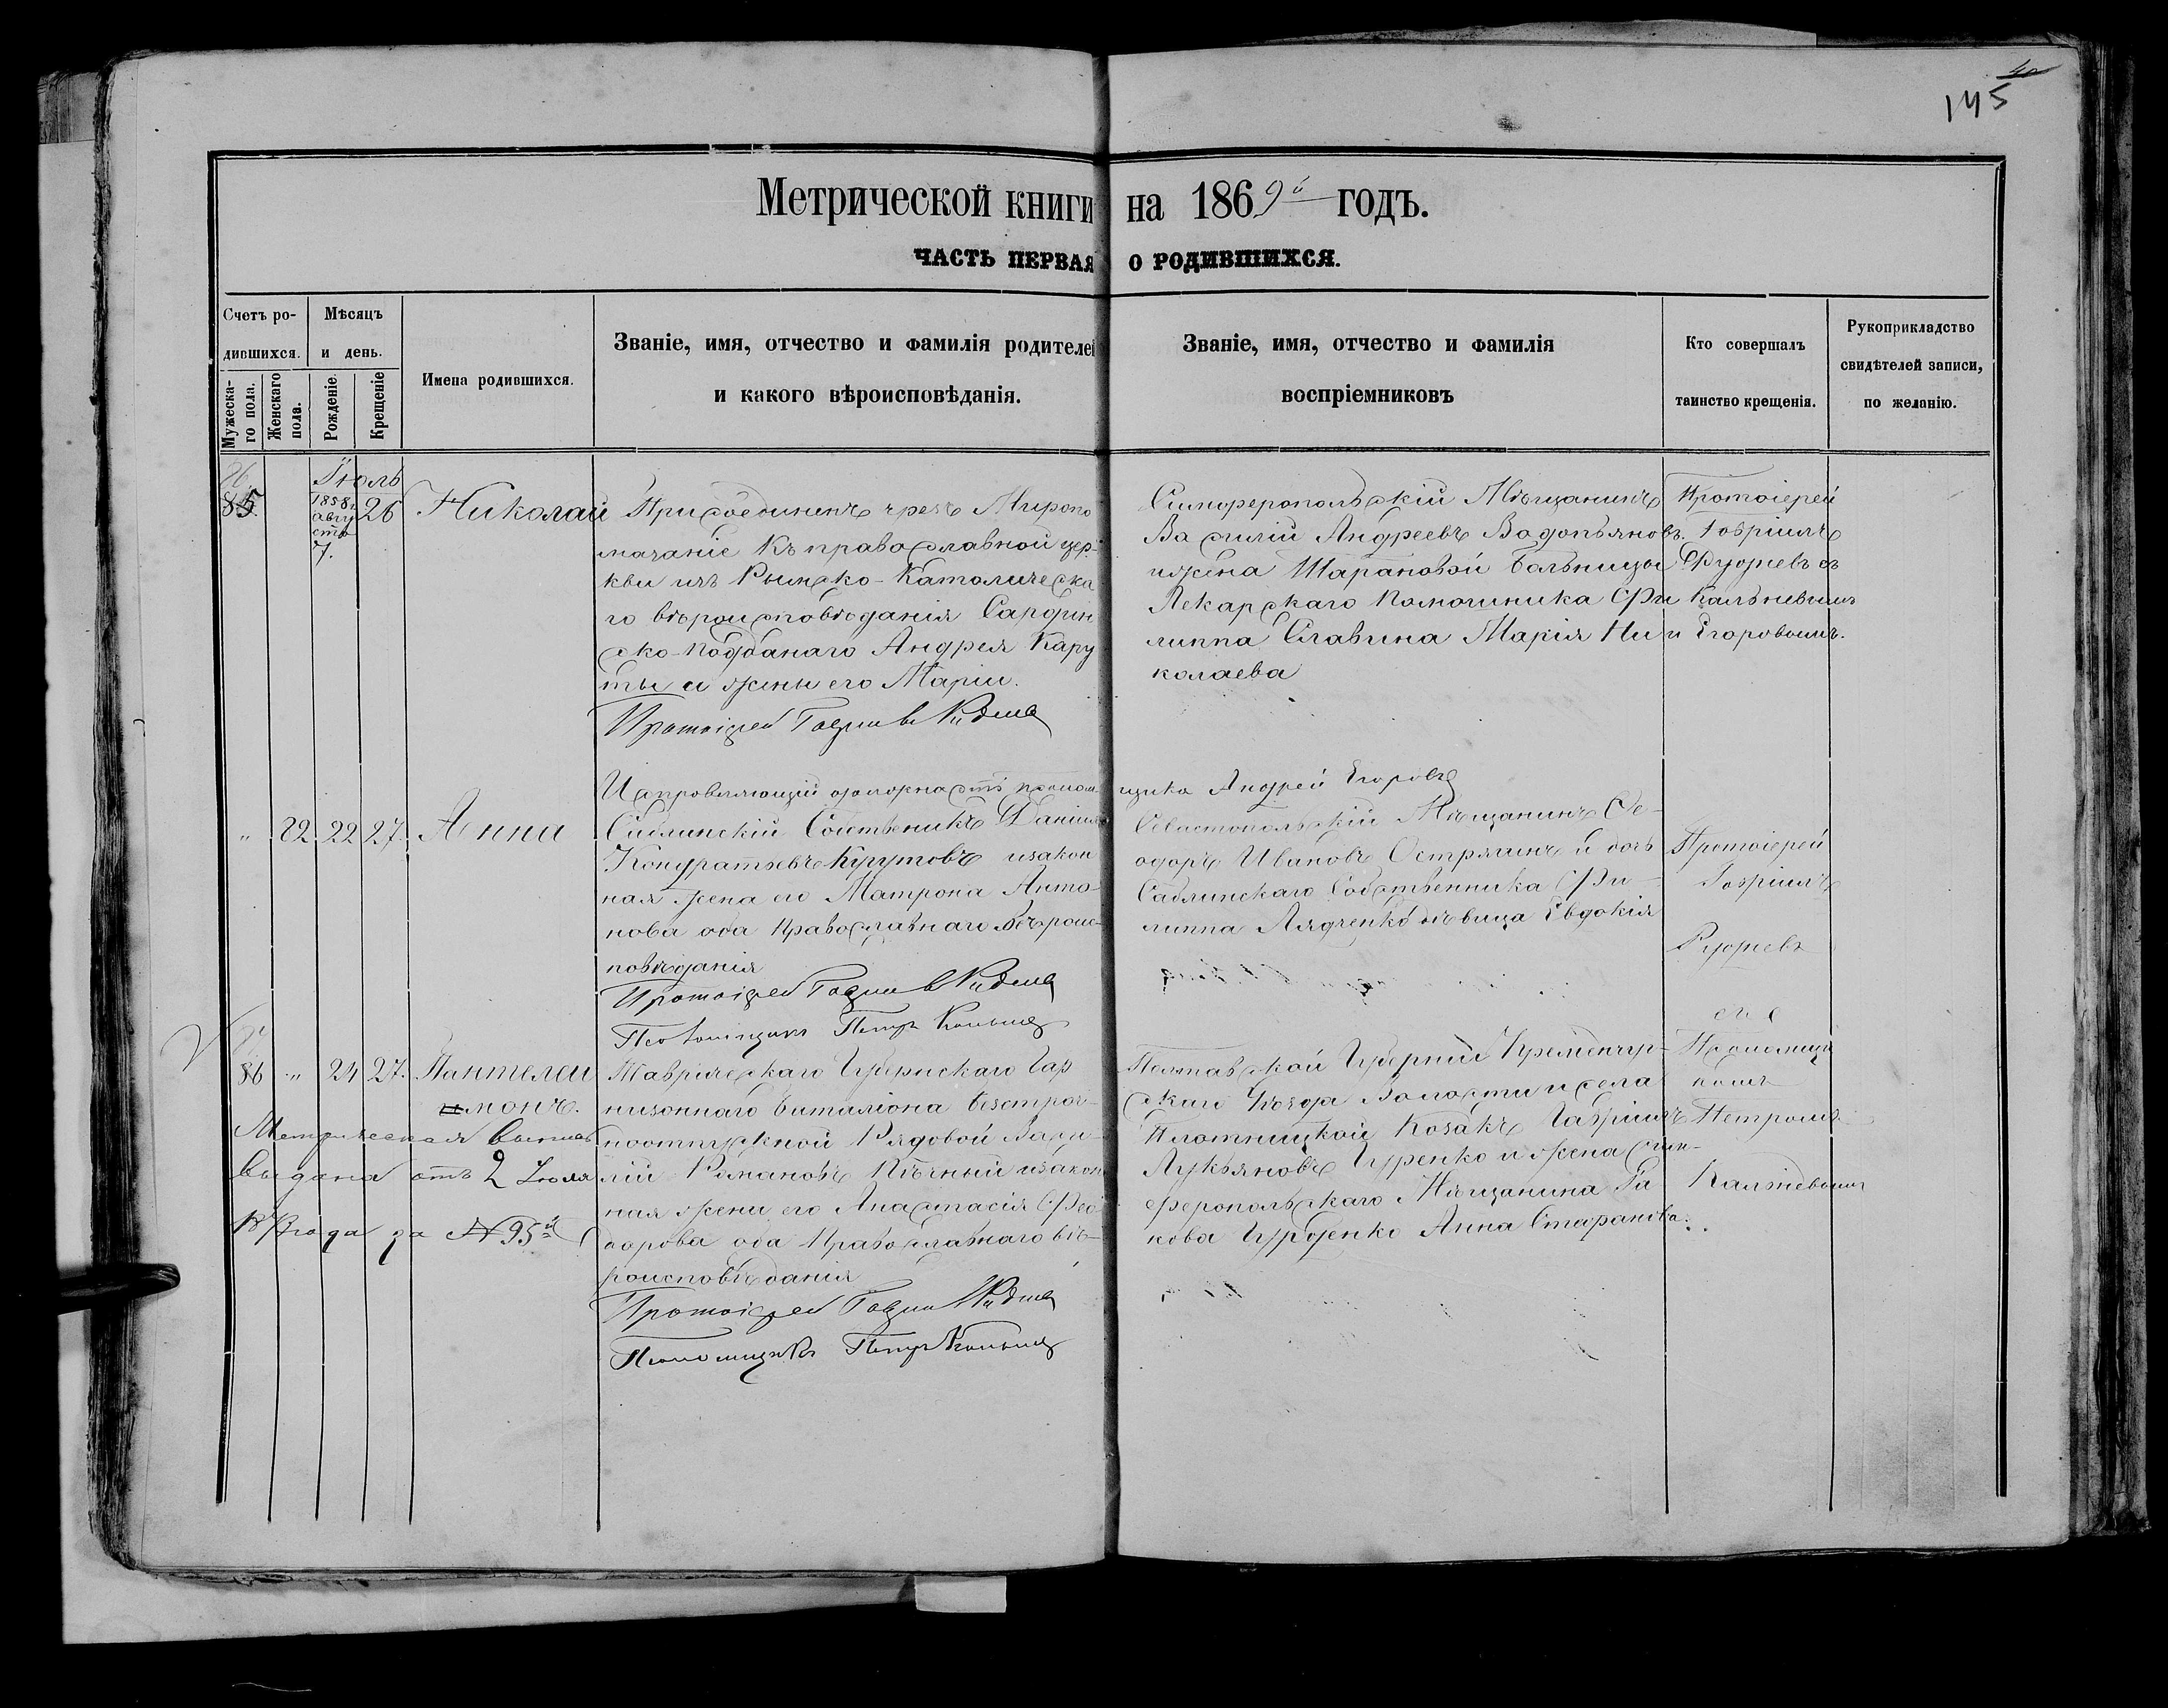 145
Метрической книги на 1869й годъ.
ЧАСТЬ ПЕРВАЯ О РОДИВШИХСЯ.
Счетъ ро-
дившихся.
Мѣсяцъ
и день.
Мужеска-
го пола.
Женскаго
пола.
Рожденіе.
Крещеніе
Имена родившихся.
Званіе, имя, отчество и фамилія родителей
и какого вѣроисповѣданія.
Званіе, имя, отчество и фамилія
воспріемниковъ
Кто совершалъ
таинство крещенія.
Рукоприкладство
свидѣтелей записи,
по желанію.
Іюль
85
1858
авгу
ста
7.
26
Николай
Присоединенъ чрезъ Миропо
мазаніе къ православной цер-
кви изъ Римско-Католическа
го вѣроисповѣданія Сардин
ско-подданаго Андрея Кару
ты и жены его Маріи.
Протоіерей Гавріилъ
Симферопольскій Мѣщанинъ
Василій Андреевъ Водопьяновъ.
и жена Шарановой больницы
Лекарскаго помошника Фи
липпа Славина Марія Ни
колаева
Протоіерей
Гавріилъ
Рудневъ съ
Кальневымъ
и Егоровымъ.
Исправляющій должность псаломщика Андрей Егоровъ
" 82 22 27. Анна
Саблинскій Собственикъ Даніилъ
Кондратьевъ Крутовъ и закон
ная жена его Матрона Анто-
нова оба Православнаго вѣроис-
повѣданія
Протоіерей Гавріилъ
Псаломщикъ Петръ
Севастопольскій Мѣщанинъ Фе-
одоръ Ивановъ Острянинъ и дочь
Саблинскаго Собственника Фи-
липпа Лядченко дѣвица Евдокія
Протоіерей
Гавріилъ
Рудневъ
86 " 24 27. Пантелеи
монъ.
Таврическаго Губернскаго Гар
низоннаго баталіона безсроч-
ноотпускной Рядовой Васи-
лій Романовъ и закон
ная жена его Анастасія Фео
дорова оба Православнаго вѣ-
роисповѣданія
Протоіерей Гавріилъ
Псаломщикъ Петръ
Метрическая выпись
выдана отъ 2 Іюля
года за № 95й
Полтавской Губерніи Кременчуг-
скаго Уѣзда Волости и села
Плотницкой Козакъ Гавріилъ
Лукьяновъ Гуренко и жена Сим-
феропольскаго Мѣщанина Іа
кова Гурбенко Анна Стафанова.
съ
Псаломщи
комъ
Петромъ
Кальневымъ